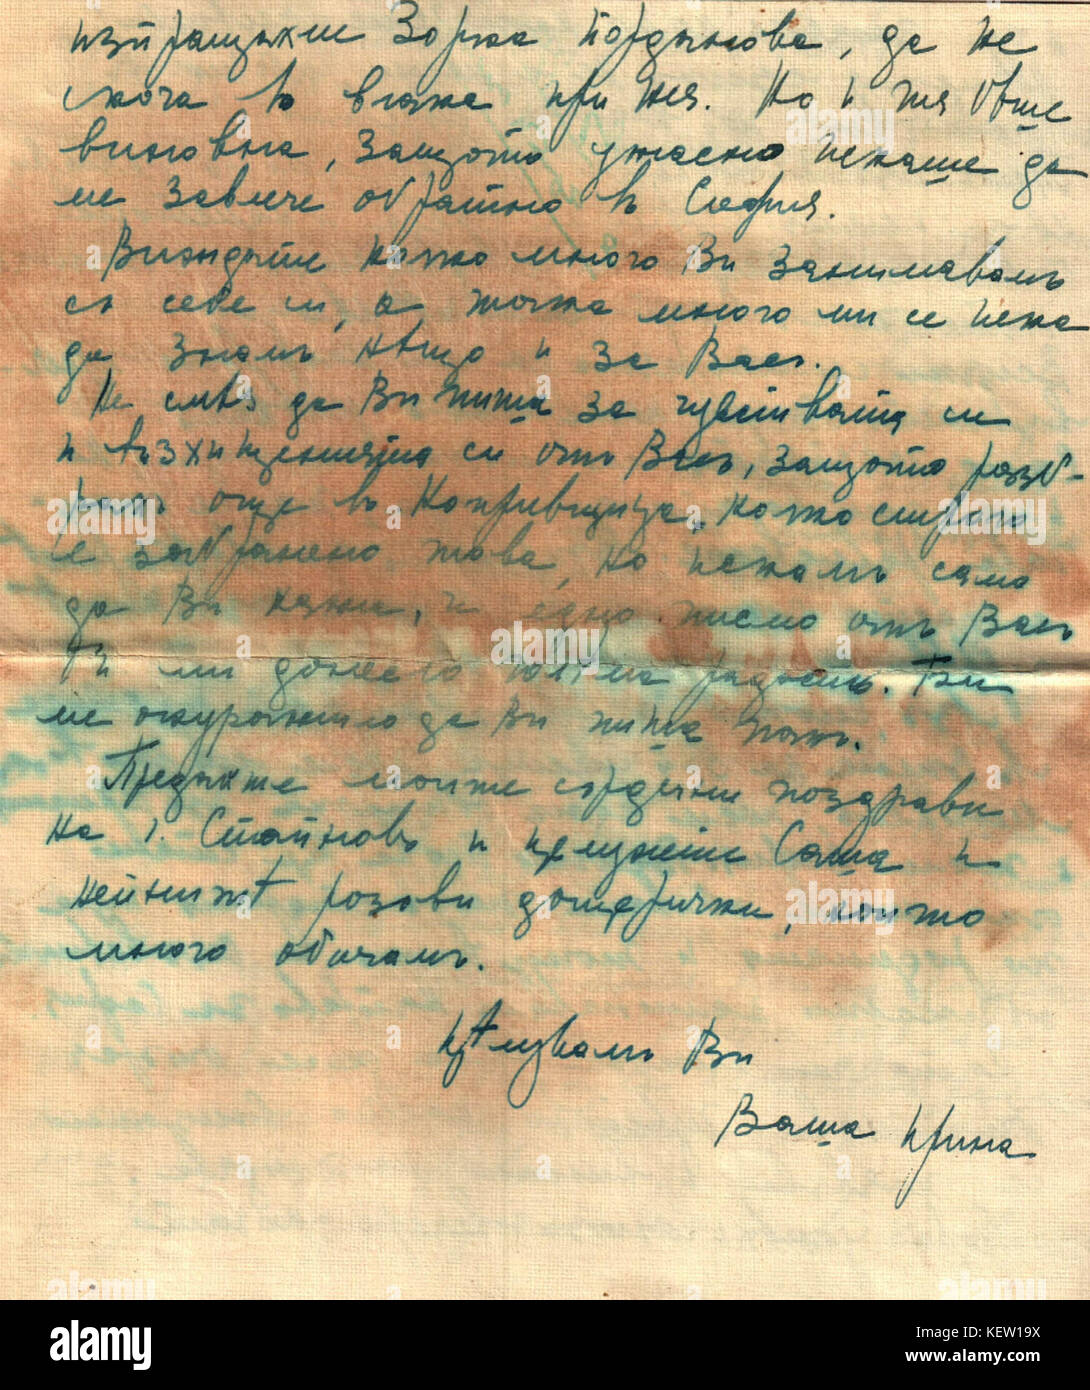 изпращахме Зорка Йорданова, да не
скоча въ влака при нея. Но и тя бѣше
виновна, защото ужасно искаше да
ме завлече обратно въ София.
Виждате колко много Ви занимавамъ
съ себе си, а толкова много ми се иска
да знамъ нѣщо и за Васъ.
Не смѣя да Ви пиша за чувствата си
и възхищенията си отъ Васъ, защото разб-
рахъ още въ Копривщица, колко строго
е забранено това, но искамъ само
да Ви кажа, че едно писмо отъ Васъ
би ми донесло голѣма радость. Би
ме окуражило да Ви пиша пакъ.
Предайте моите сърдечни поздрави
на г. Стайновъ и целунете Саша и
нейнитѣ розови дъщерички, които
много обичамъ.
Цѣлувамъ Ви
Ваша Ирина
alamy
Image ID: KEW19X
www.alamy.com